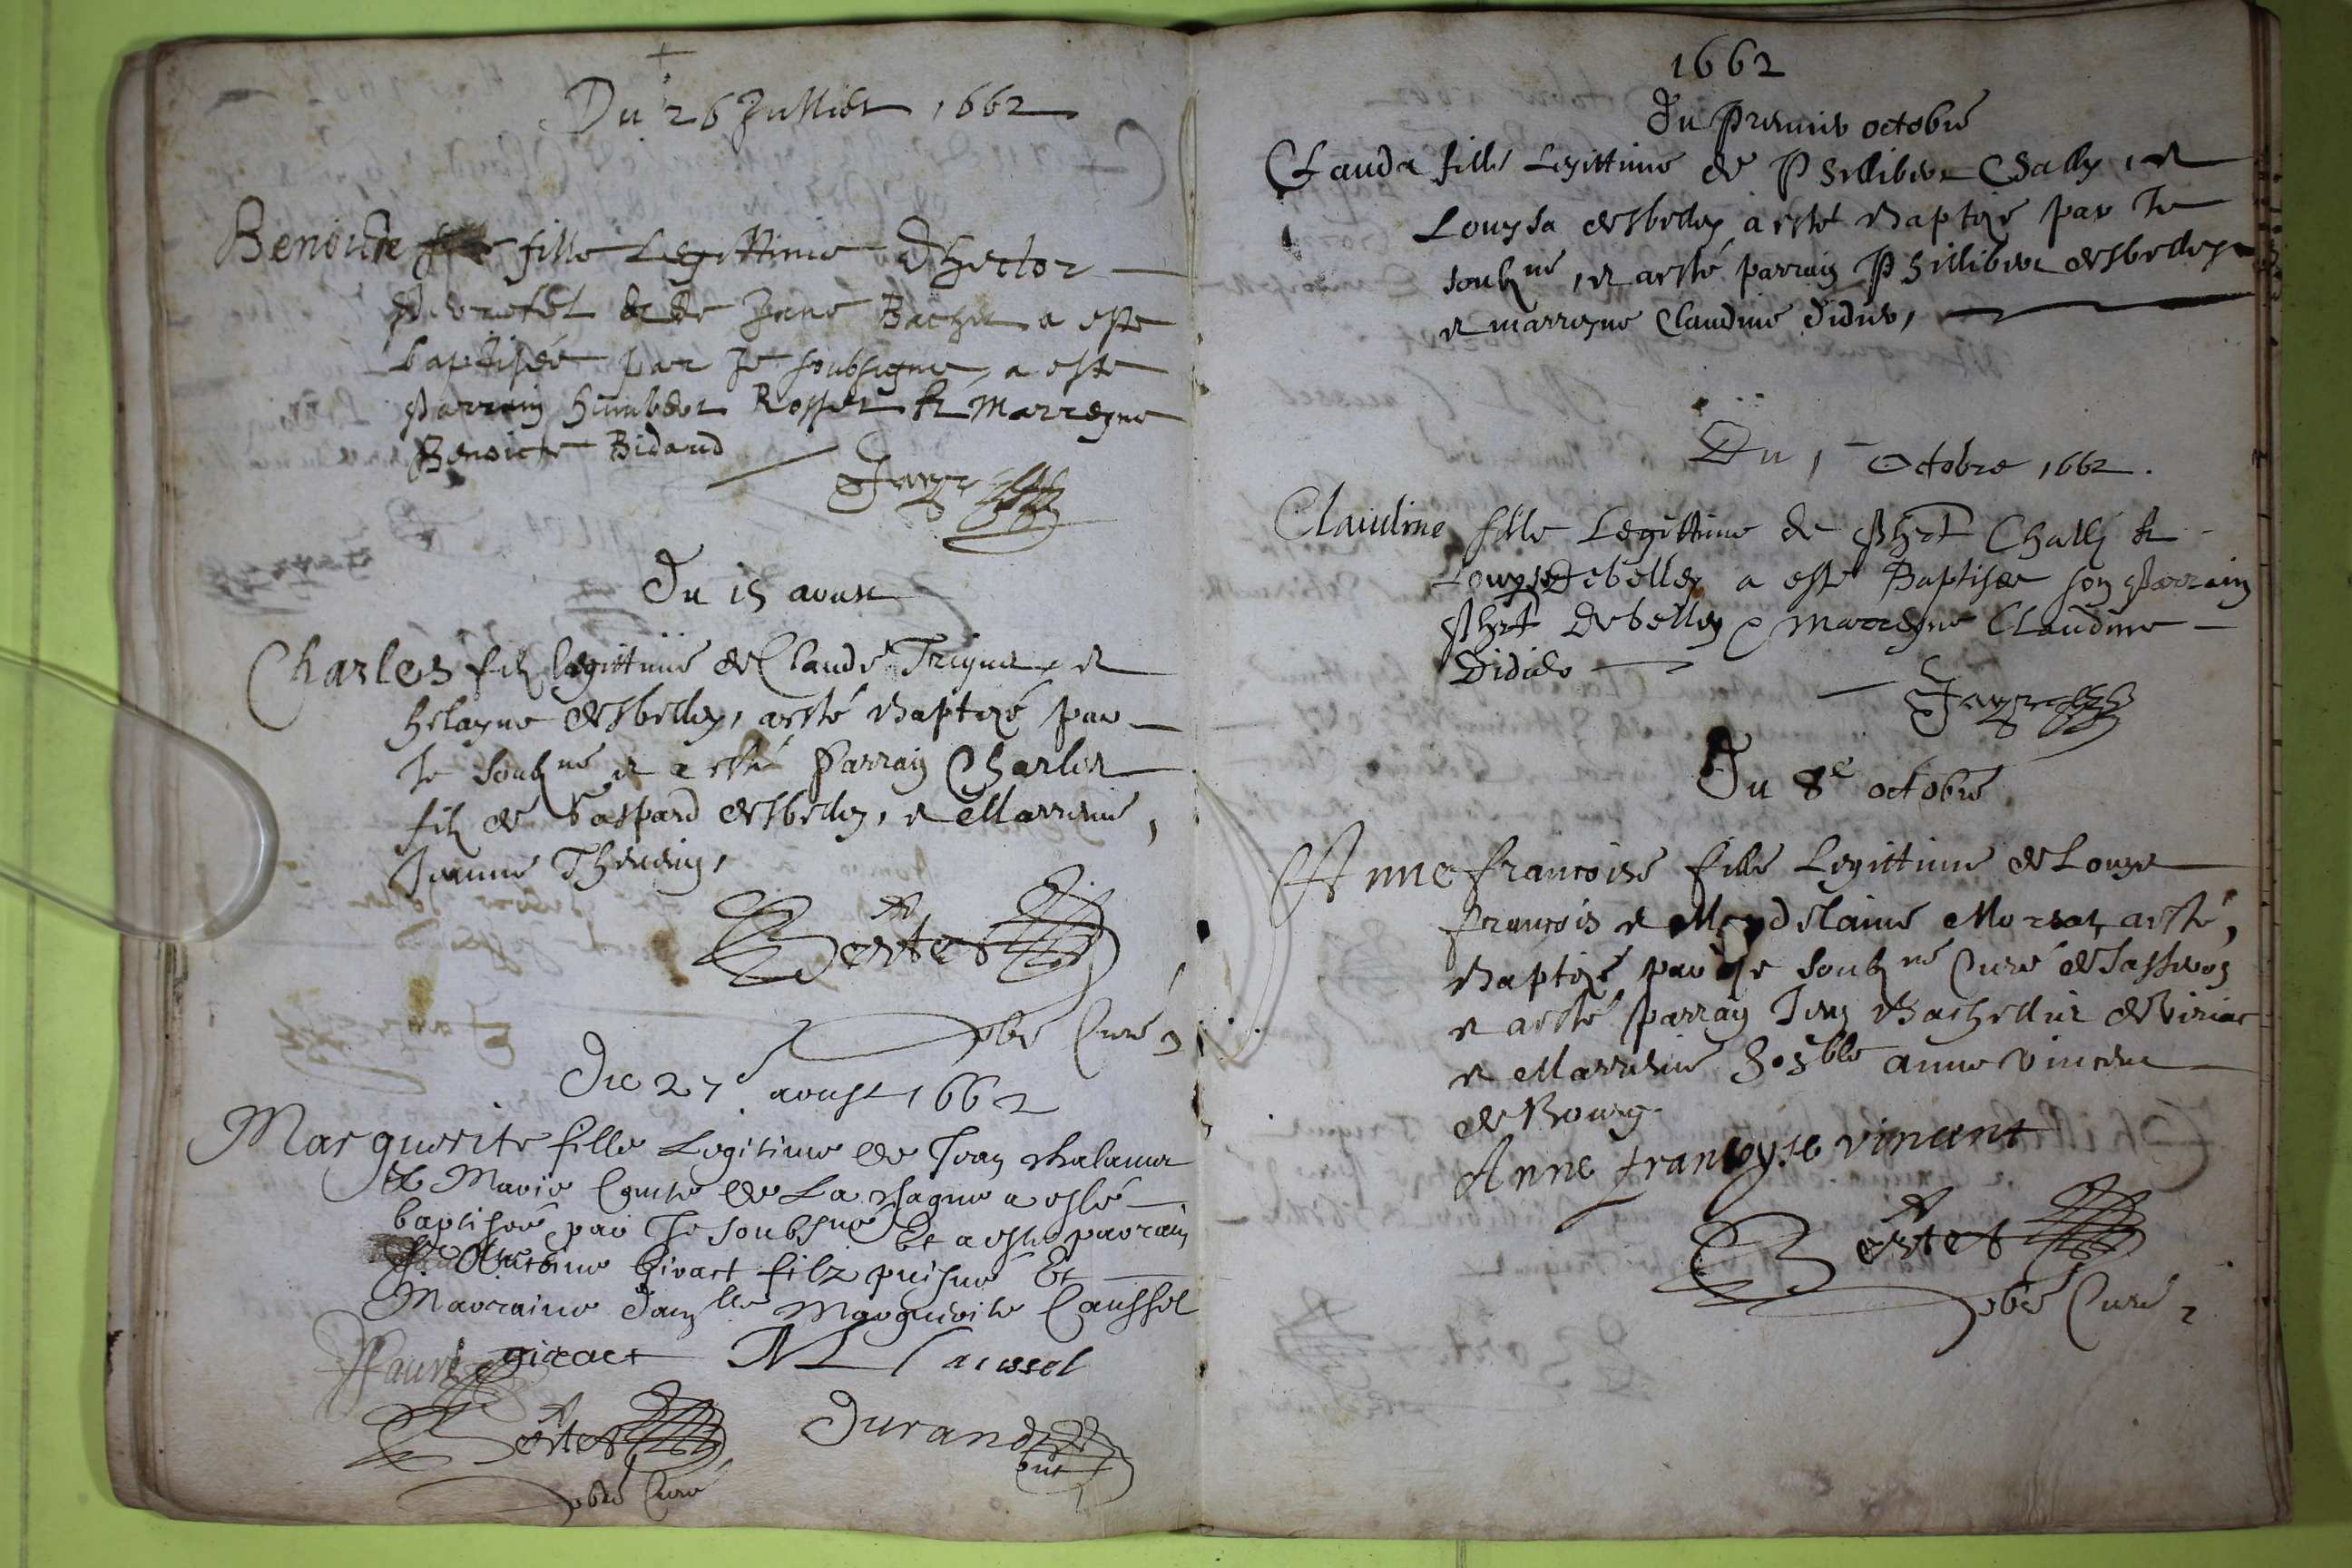 Du 26 Juillet 1662
Benoicte fille Legittime d'hector
et de Jane Bachet a este
baptisée par Je soubsigne, a este
parrain humbert Rosset & marreyne
Benoicte Bidaud
Fayr
Du 15 aoust
Charles filz legittime de Claude Triquet, et
helayne desbelley, a esté Baptizé par
Je soubz né et a esté Parrain Charles
filz de Gaspard desbelley, et Marreine,
Jeanne Thevenin,
Bertet
pbre Curé
Du 27e aoust 1662
Marguerite fille Legitime de Jean
& Marie Comte de La a esté
baptisée par Je soubsné Et a esté parrain
Anthoine Giract filz puisné Et
Marraine dam lle Marguerite Caussel
giract M Caussel
Bertet Durand
pbre Curé
1662
Du Premier octobre
Clauda fille Legittime de Philibert Chally, et
Louysa desbelley a esté Baptizé par Je
soubz né, et a esté parrain Philibert desbelley
et marreyne Claudine Didier,
Du 1 Octobre 1662.
Claudine fille Legittime de Phrt Challi &
Louyse Debelley a esté Baptisée son Parrain
Phrt Debelley & Marreyne Claudine
Didier
Fayr
Du 8e octobre
Anne françoise fille Legittime de Louys
françois et Magdelaine Morsat, a esté,
Baptizé par Je soubz né Curé de Jasseron
et a esté parrain Jean Bachellier de Viriac
et Marreine hon ble anne Vincent
de Bourg.
Anne françoyse vincent
Bertet
pbre Curé